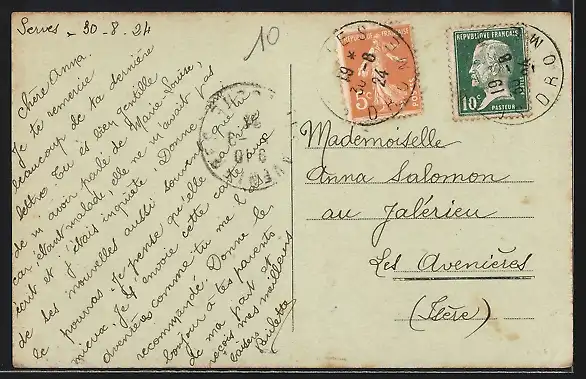 Serves - 30-8-24
Chère Anna.
Je te remercie
beaucoup de ta dernière
lettre Tu es bien gentille
de m'avoir parlé de Marie Louise,
car étant malade, elle ne m'avait pas
écrit et j'étais inquiète, Donne
de ses nouvelles aussi souvent que tu
le pourras. Je pense qu'elle va
mieux. Je t'envoie cette carte aux
avenières comme tu me l'as
recommandé. Donne le
bonjour à tes parents
de ma part et
reçois mes meilleurs
baisers
Paulette
10
5c
POSTES
REPUBLIQUE FRANÇAISE
10c
PASTEUR
DROME
19 * 30 -8 24
DROM
9 40
Mademoiselle
Anna Salomon
au Jalérieu
Les Avenières
(Isère)